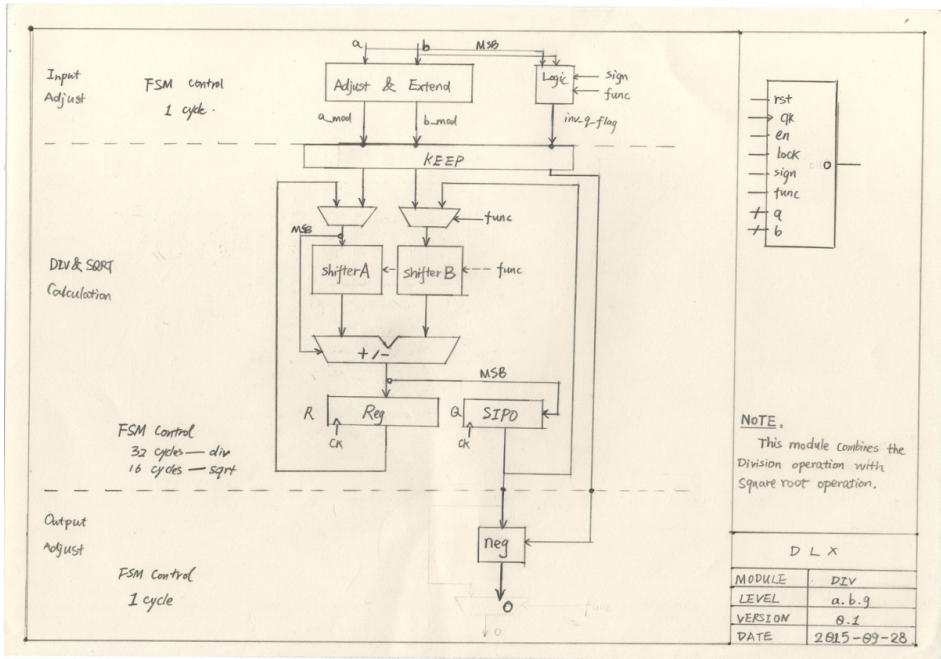 Input
Adjust
FSM Control
1 cycle.
a
b
MSB
Adjust & Extend
Logic
sign
func
a_mod
b_mod
inv_q_flag
KEEP
func
MSB
DIV & SQRT
Calculation
shifter A
shifter B
func
+/-
MSB
R
Reg
CK
Q
SIPO
CK
FSM Control
32 cycles — div
16 cycles — sqrt
Output
Adjust
neg
FSM Control
1 cycle
O
func
o
rst
clk
en
lock
sign
func
a
b
O
NOTE.
This module combines the
Division operation with
Square root operation.
DLX
MODULE DIV
LEVEL a.b.9
VERSION 0.1
DATE 2015-09-28